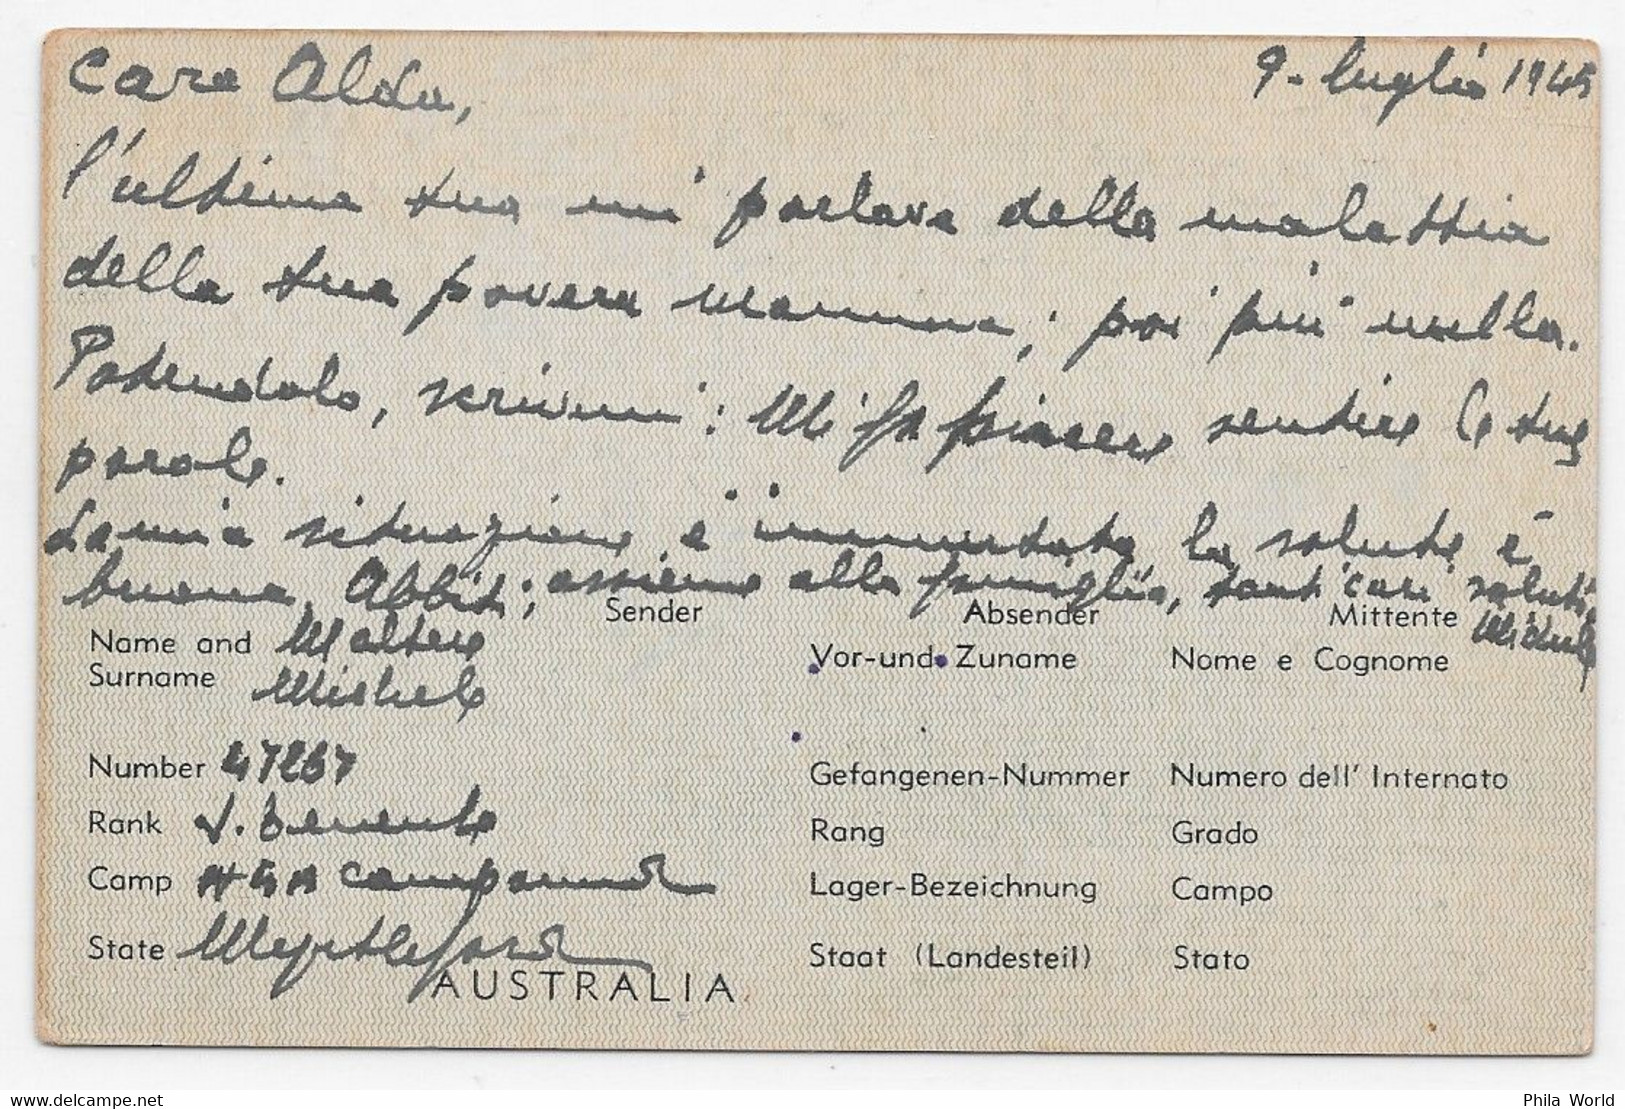 Cara Alda, 9. luglio 1945
l'ultima tua mi parlava della malattia
della tua povera mamma; poi più nulla.
Potendolo, scrivimi: Mi fa piacere sentire le tue
parole.
La mia situazione è immutata, la salute è
buona. Abbiti, assieme alla famiglia, tanti cari saluti
Michele
Sender Absender Mittente
Name and Surname Michele Vor-und Zuname Nome e Cognome
Number 47267 Gefangenen-Nummer Numero dell' Internato
Rank S. Tenente Rang Grado
Camp Lager-Bezeichnung Campo
State Myrtleford Staat (Landesteil) Stato
AUSTRALIA
www.delcampe.net Phila World